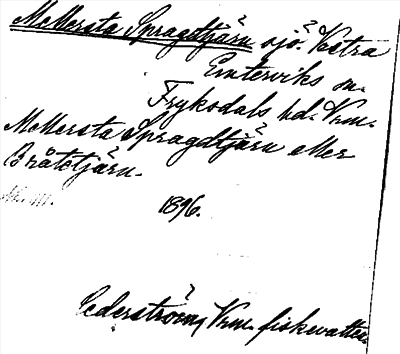 Mellersta Spragdtjärn sjö. Västra
Emterviks sn.
Fryksdals hd. Vrm.
Mellersta Spragdtjärn eller
Bråtetjärn.
1896.
Cederström, Vrm. fiskevatten